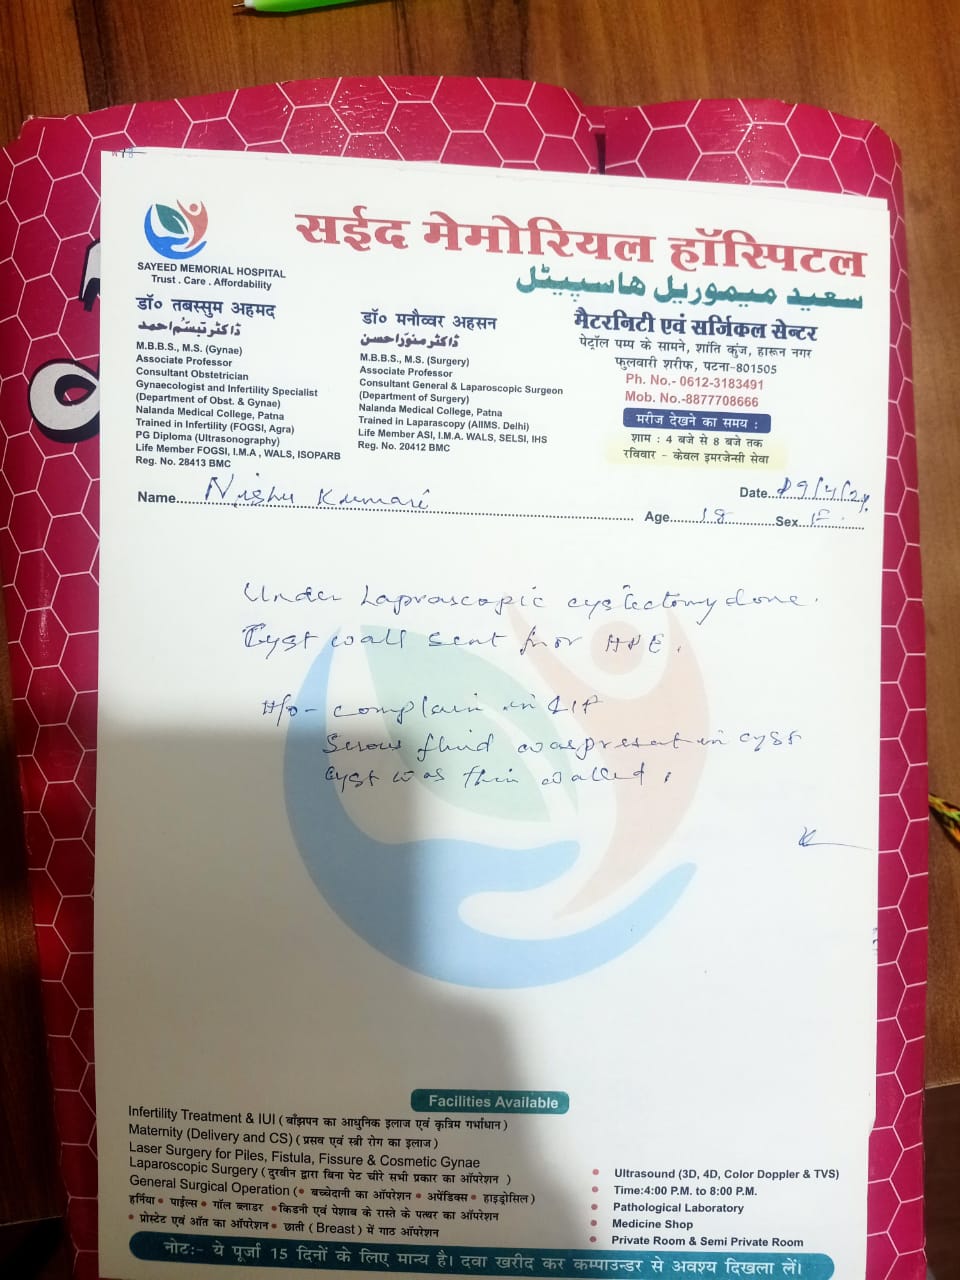 सईद मेमोरियल हॉस्पिटल
سعید میموریل ہاسپیٹل
SAYEED MEMORIAL HOSPITAL
Trust . Care . Affordability
डॉ० तबस्सुम अहमद
ڈاکٹر تبسّم احمد
M.B.B.S., M.S. (Gynae)
Associate Professor
Consultant Obstetrician
Gynaecologist and Infertility Specialist
(Department of Obst. & Gynae)
Nalanda Medical College, Patna
Trained in Infertility (FOGSI, Agra)
PG Diploma (Ultrasonography)
Life Member FOGSI, I.M.A , WALS, ISOPARB
Reg. No. 28413 BMC
डॉ० मनौव्वर अहसन
ڈاکٹر منوّر احسن
M.B.B.S., M.S. (Surgery)
Associate Professor
Consultant General & Laparoscopic Surgeon
(Department of Surgery)
Nalanda Medical College, Patna
Trained in Laparascopy (AIIMS. Delhi)
Life Member ASI, I.M.A. WALS, SELSI, IHS
Reg. No. 20412 BMC
मैटरनिटी एवं सर्जिकल सेन्टर
पेट्रॉल पम्प के सामने, शांति कुंज, हारून नगर
फुलवारी शरीफ, पटना-801505
Ph. No.- 0612-3183491
Mob. No.-8877708666
मरीज देखने का समय :
शाम : 4 बजे से 8 बजे तक
रविवार - केवल इमरजेन्सी सेवा
Date
Name Nishu Kumari Age 18 Sex F
Under Laproscopic cystectomy done.
Cyst wall sent for HPE.
H/o - complain in
Serous fluid was present in cyst
Cyst was thin walled.
Facilities Available
Infertility Treatment & IUI ( बाँझपन का आधुनिक इलाज एवं कृत्रिम गर्भाधान )
Maternity (Delivery and CS) ( प्रसव एवं स्त्री रोग का इलाज )
Laser Surgery for Piles, Fistula, Fissure & Cosmetic Gynae
Laparoscopic Surgery ( दुरवीन द्वारा बिना पेट चीरे सभी प्रकार का ऑपरेशन )
General Surgical Operation ( • बच्चेदानी का ऑपरेशन • अपेंडिक्स • हाइड्रोसिल )
हर्निया • पाईल्स • गॉल ब्लाडर • किडनी एवं पेशाब के रास्ते के पत्थर का ऑपरेशन
• प्रोस्टेट एवं आँत का ऑपरेशन • छाती ( Breast ) में गाठ ऑपरेशन
• Ultrasound (3D, 4D, Color Doppler & TVS)
• Time:4:00 P.M. to 8:00 P.M.
• Pathological Laboratory
• Medicine Shop
• Private Room & Semi Private Room
नोटः- ये पूर्जा 15 दिनों के लिए मान्य है। दवा खरीद कर कम्पाउन्डर से अवश्य दिखला लें।